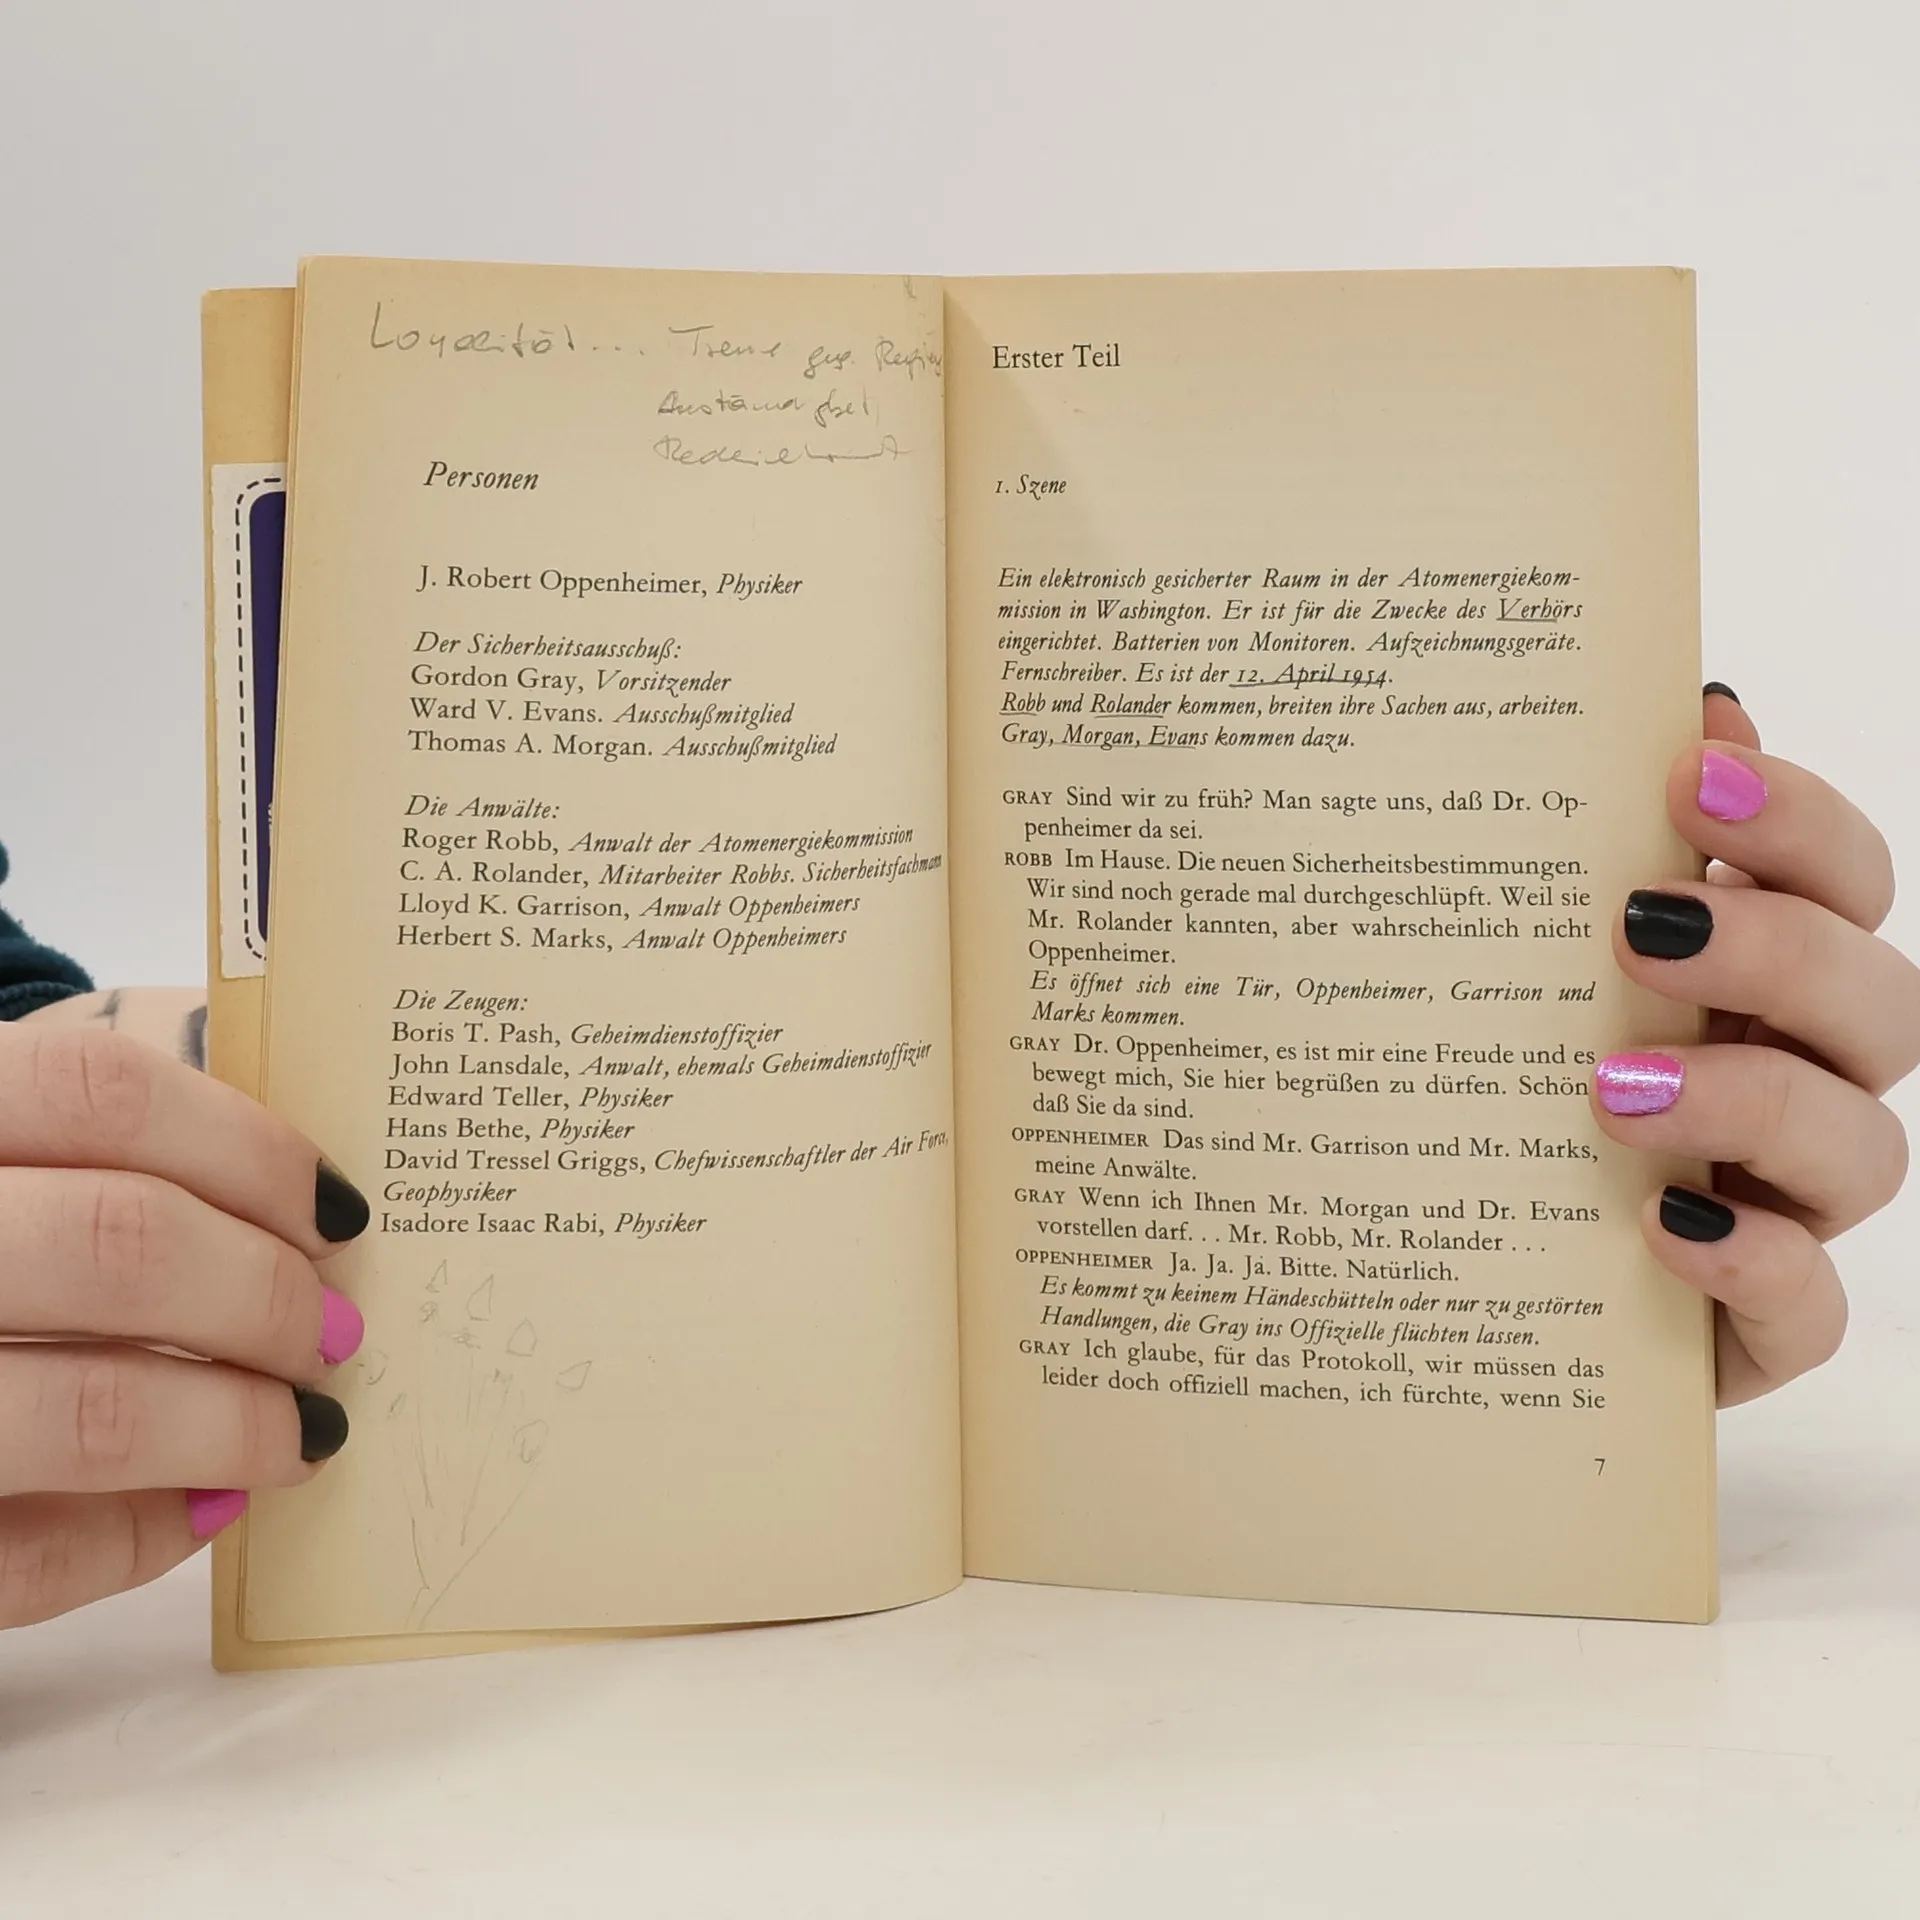 Loyalität... Treue geg.
Personen
J. Robert Oppenheimer, Physiker
Der Sicherheitsausschuß:
Gordon Gray, Vorsitzender
Ward V. Evans. Ausschußmitglied
Thomas A. Morgan. Ausschußmitglied
Die Anwälte:
Roger Robb, Anwalt der Atomenergiekommission
C. A. Rolander, Mitarbeiter Robbs. Sicherheitsfachmann
Lloyd K. Garrison, Anwalt Oppenheimers
Herbert S. Marks, Anwalt Oppenheimers
Die Zeugen:
Boris T. Pash, Geheimdienstoffizier
John Lansdale, Anwalt, ehemals Geheimdienstoffizier
Edward Teller, Physiker
Hans Bethe, Physiker
David Tressel Griggs, Chefwissenschaftler der Air Force,
Geophysiker
Isadore Isaac Rabi, Physiker
Erster Teil
1. Szene
Ein elektronisch gesicherter Raum in der Atomenergiekom-
mission in Washington. Er ist für die Zwecke des Verhörs
eingerichtet. Batterien von Monitoren. Aufzeichnungsgeräte.
Fernschreiber. Es ist der 12. April 1954.
Robb und Rolander kommen, breiten ihre Sachen aus, arbeiten.
Gray, Morgan, Evans kommen dazu.
GRAY Sind wir zu früh? Man sagte uns, daß Dr. Op-
penheimer da sei.
ROBB Im Hause. Die neuen Sicherheitsbestimmungen.
Wir sind noch gerade mal durchgeschlüpft. Weil sie
Mr. Rolander kannten, aber wahrscheinlich nicht
Oppenheimer.
Es öffnet sich eine Tür, Oppenheimer, Garrison und
Marks kommen.
GRAY Dr. Oppenheimer, es ist mir eine Freude und es
bewegt mich, Sie hier begrüßen zu dürfen. Schön
daß Sie da sind.
OPPENHEIMER Das sind Mr. Garrison und Mr. Marks,
meine Anwälte.
GRAY Wenn ich Ihnen Mr. Morgan und Dr. Evans
vorstellen darf. . . Mr. Robb, Mr. Rolander . . .
OPPENHEIMER Ja. Ja. Ja. Bitte. Natürlich.
Es kommt zu keinem Händeschütteln oder nur zu gestörten
Handlungen, die Gray ins Offizielle flüchten lassen.
GRAY Ich glaube, für das Protokoll, wir müssen das
leider doch offiziell machen, ich fürchte, wenn Sie
7